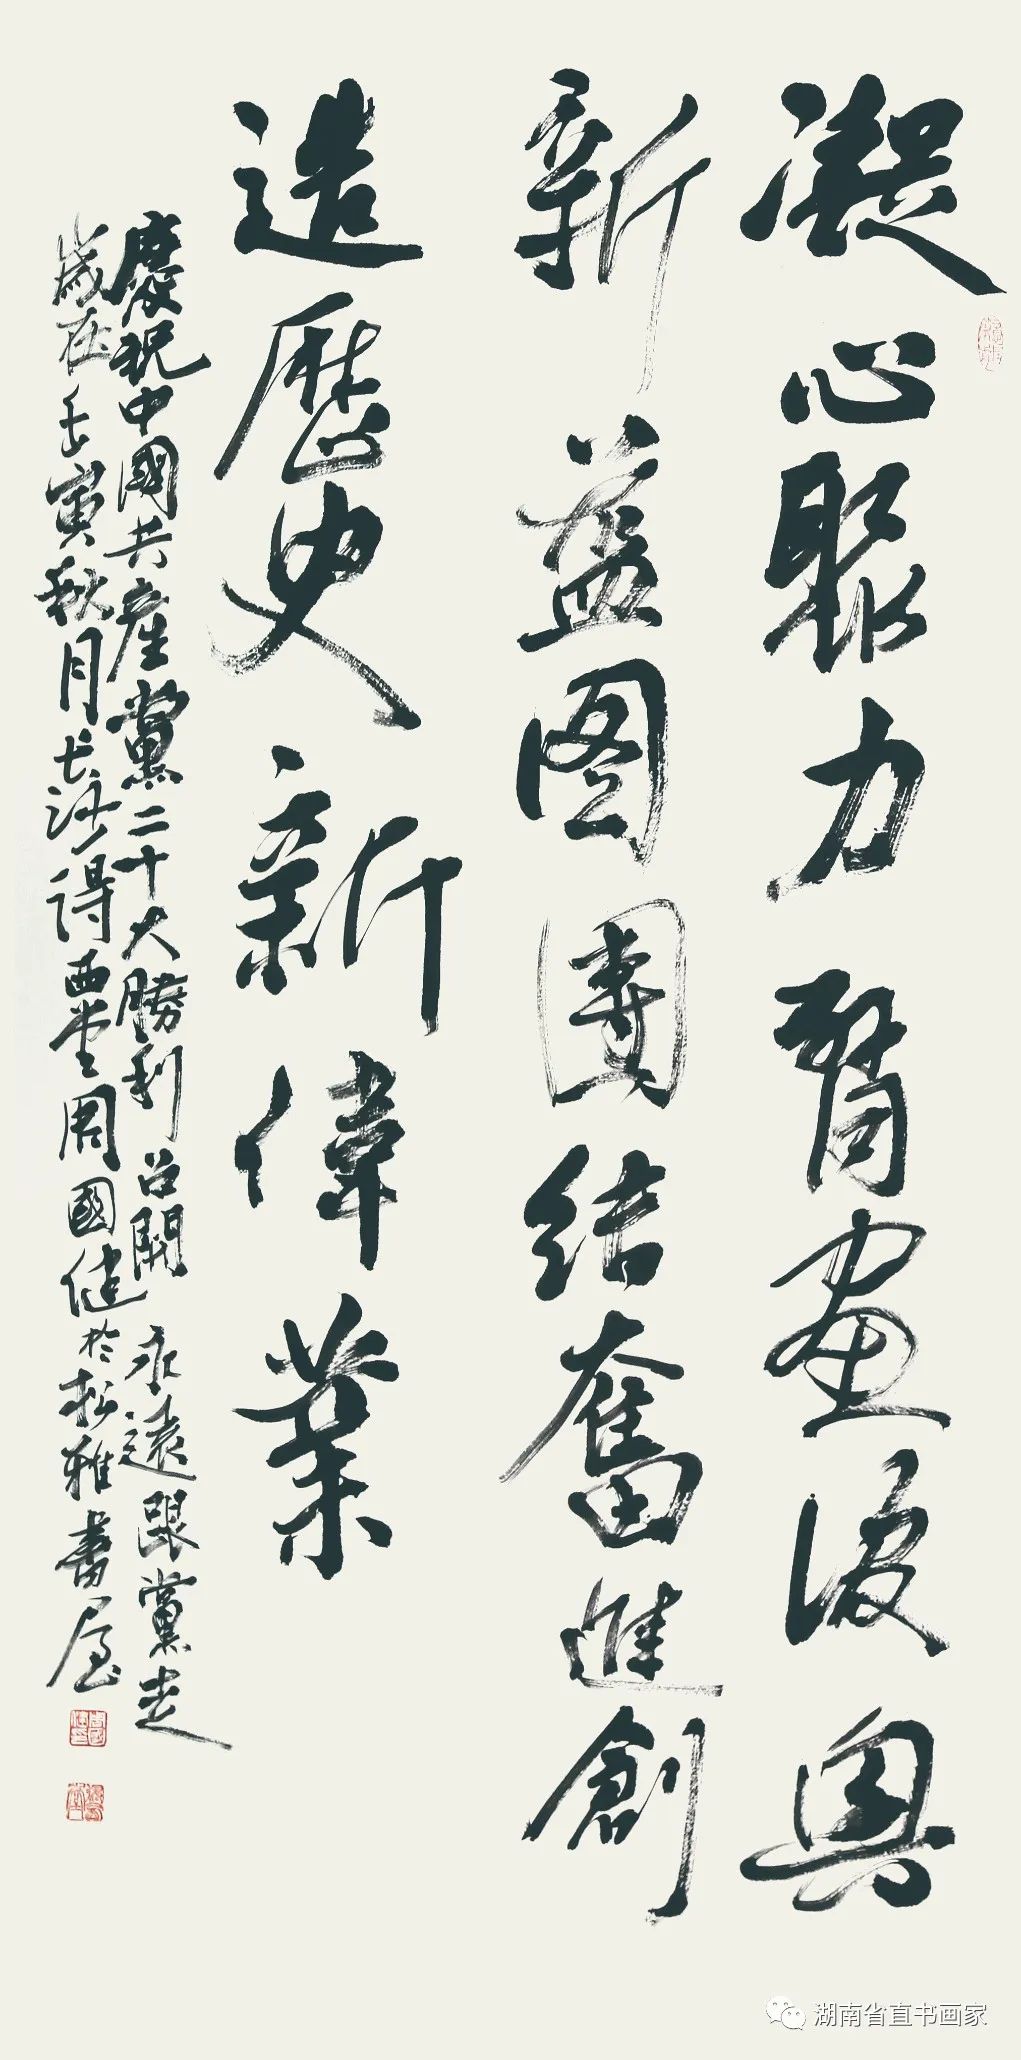 凝心聚力擘画復興
新蓝图團结奮進創
造歷史新偉業
慶祝中國共産黨二十大勝利召開 永遠跟黨走
歲在壬寅秋月长沙得雨堂周國健於松雅書屋
湖南省直书画家